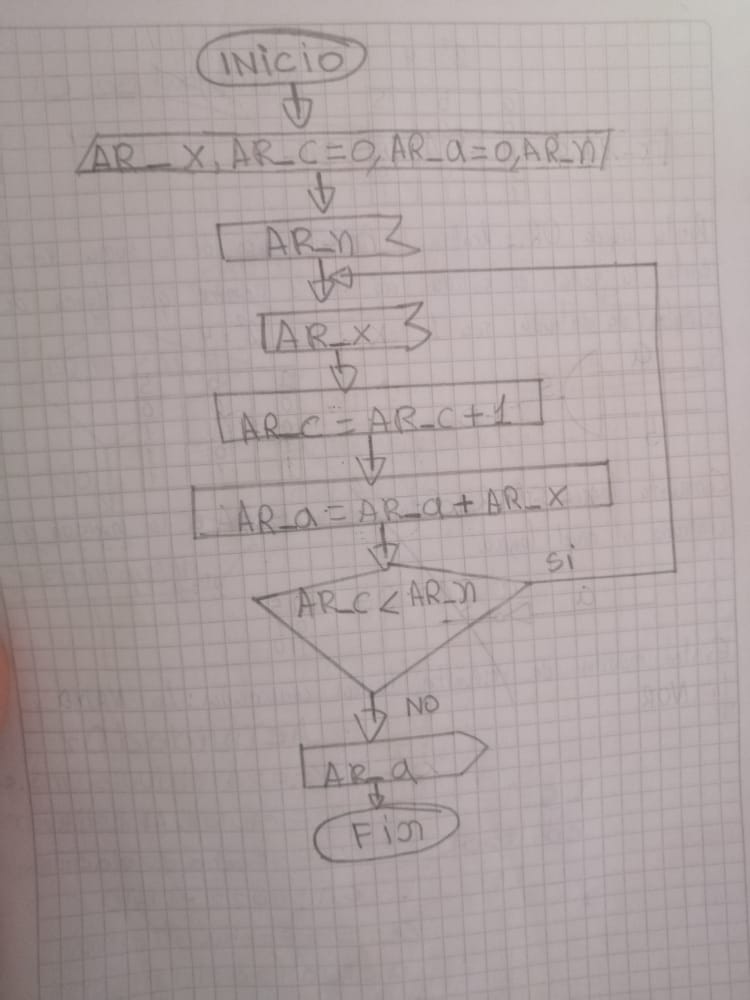 INICIO
AR_X, AR_C=0, AR_a=0, AR_n
AR_n
AR_X
AR_C = AR_C + 1
AR_a = AR_a + AR_X
si
AR_C < AR_n
NO
AR_a
Fin